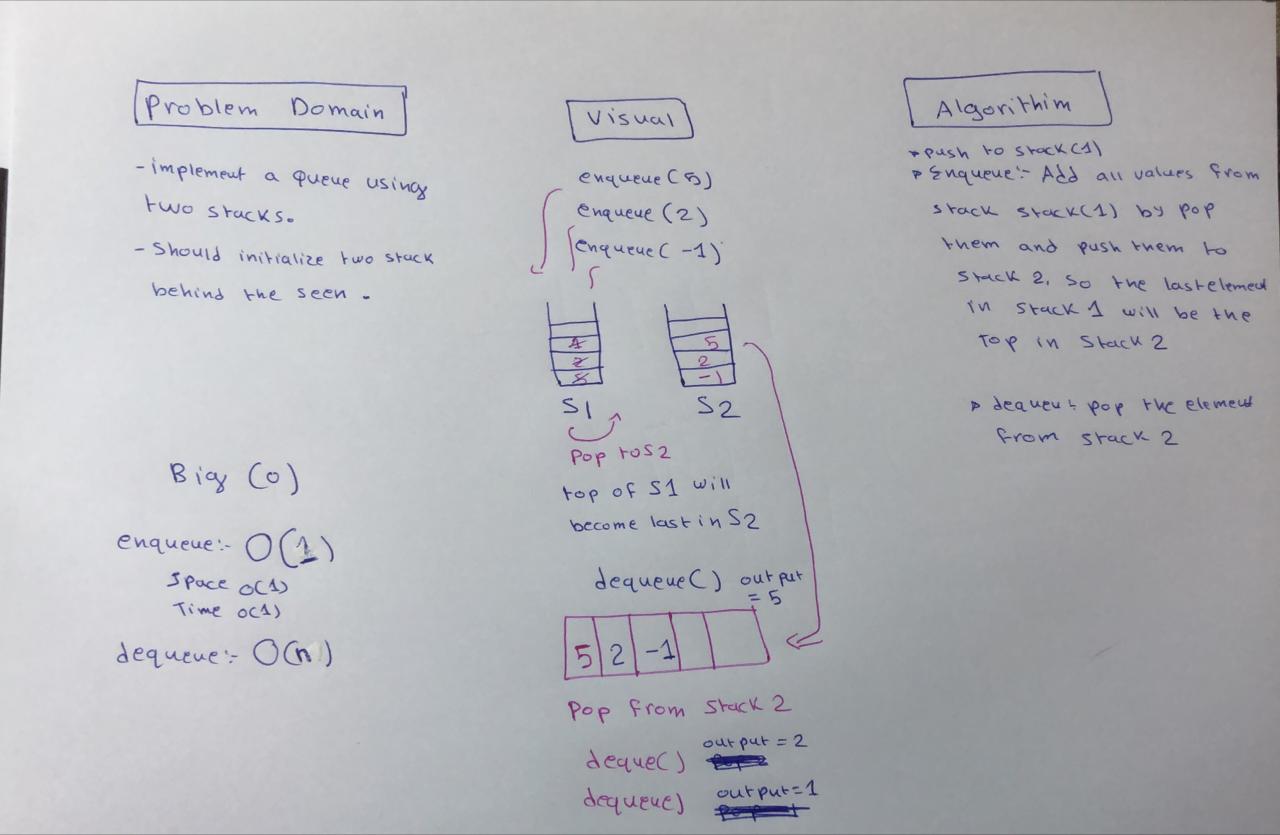 Problem Domain
- implement a queue using
two stacks.
- Should initialize two stack
behind the seen.
Big (O)
enqueue:- O(1)
Space O(1)
Time O(1)
dequeue:- O(n)
Visual
enqueue(5)
enqueue(2)
enqueue(-1)
2
5
5
2
-1
S1
S2
Pop to S2
top of S1 will
become last in S2
dequeue() output
= 5
5 2 -1
Pop from Stack 2
deque() output = 2
dequeue) output=1
Algorithim
push to stack(1)
Enqueue:- Add all values from
stack stack(1) by pop
them and push them to
stack 2, so the last element
in stack 1 will be the
top in stack 2
dequeu: pop the element
from stack 2